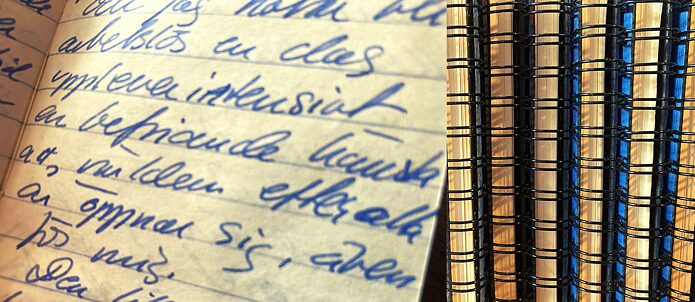 och jag
arbetslös en dag
upplever intensivt
en befriande känsla
att världen efter allt
öppnar sig, även
för mig.
Den